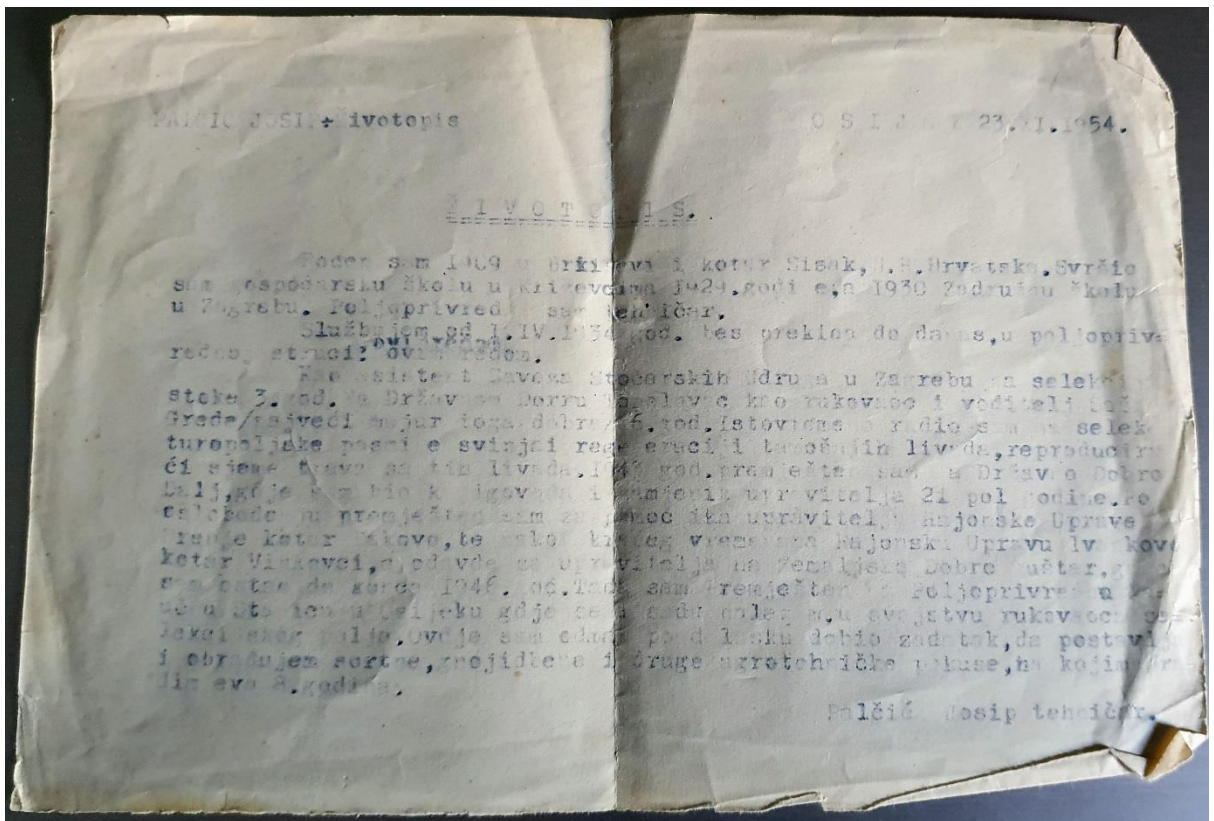 PALČIĆ JOSIP÷Životopis O S I J E K 23.XI.1954.
Ž I V O T O P I S.
Rođen sam 1909 u i kotar Sisak,N.R.Hrvatska.Svršio
sam gospodarsku školu u Križevcima 1929.godi e,a 1930 Zadružnu školu
u Zagrebu. Poljoprivred sam tehničar.
Službujem od 1.IV.1934 god. bes prekida do danas,u poljopriv
rednoj struci: ovim redom.
Kao asistent Saveza Stočarskih Udruga u Zagrebu na selekciji
stoke 3.god. na Državnom Dobru kao rukovaoc i voditelj
Greda/najveći majur toga dobra/ 6.god.Istovremeno radio sam na selek
turopoljske pasmi e svinja i regeneraciji tamošnjih livada,reproducira
ći sjeme trava sa tih livada. god.premješten sam na Državno Dobro
Dalj,gdje sam bio i zamjenik upravitelja 2i pol godine.Po
premješten sam za pomoćnika upravitelja Rajonske Uprave
kotar Đakovo,te nakon kratkog vremena na Rajonsku Upravu Ivankovo
kotar Vinkovci,a odavde za upravitelja na Zemaljsko Dobro
sam ostao do konca 1946. god.Tada sam premješten Poljoprivred
u Osijeku gdje se i sada nalazim,u svojstvu rukovaoca
polja.Ovdje sam odmah po dolasku dobio zadatak,da postavlja
i obrađujem sortne,gnojidbene i druge agrotehničke pokuse,na kojima ra
dim evo 8.godina.
Palčić Josip tehničar.